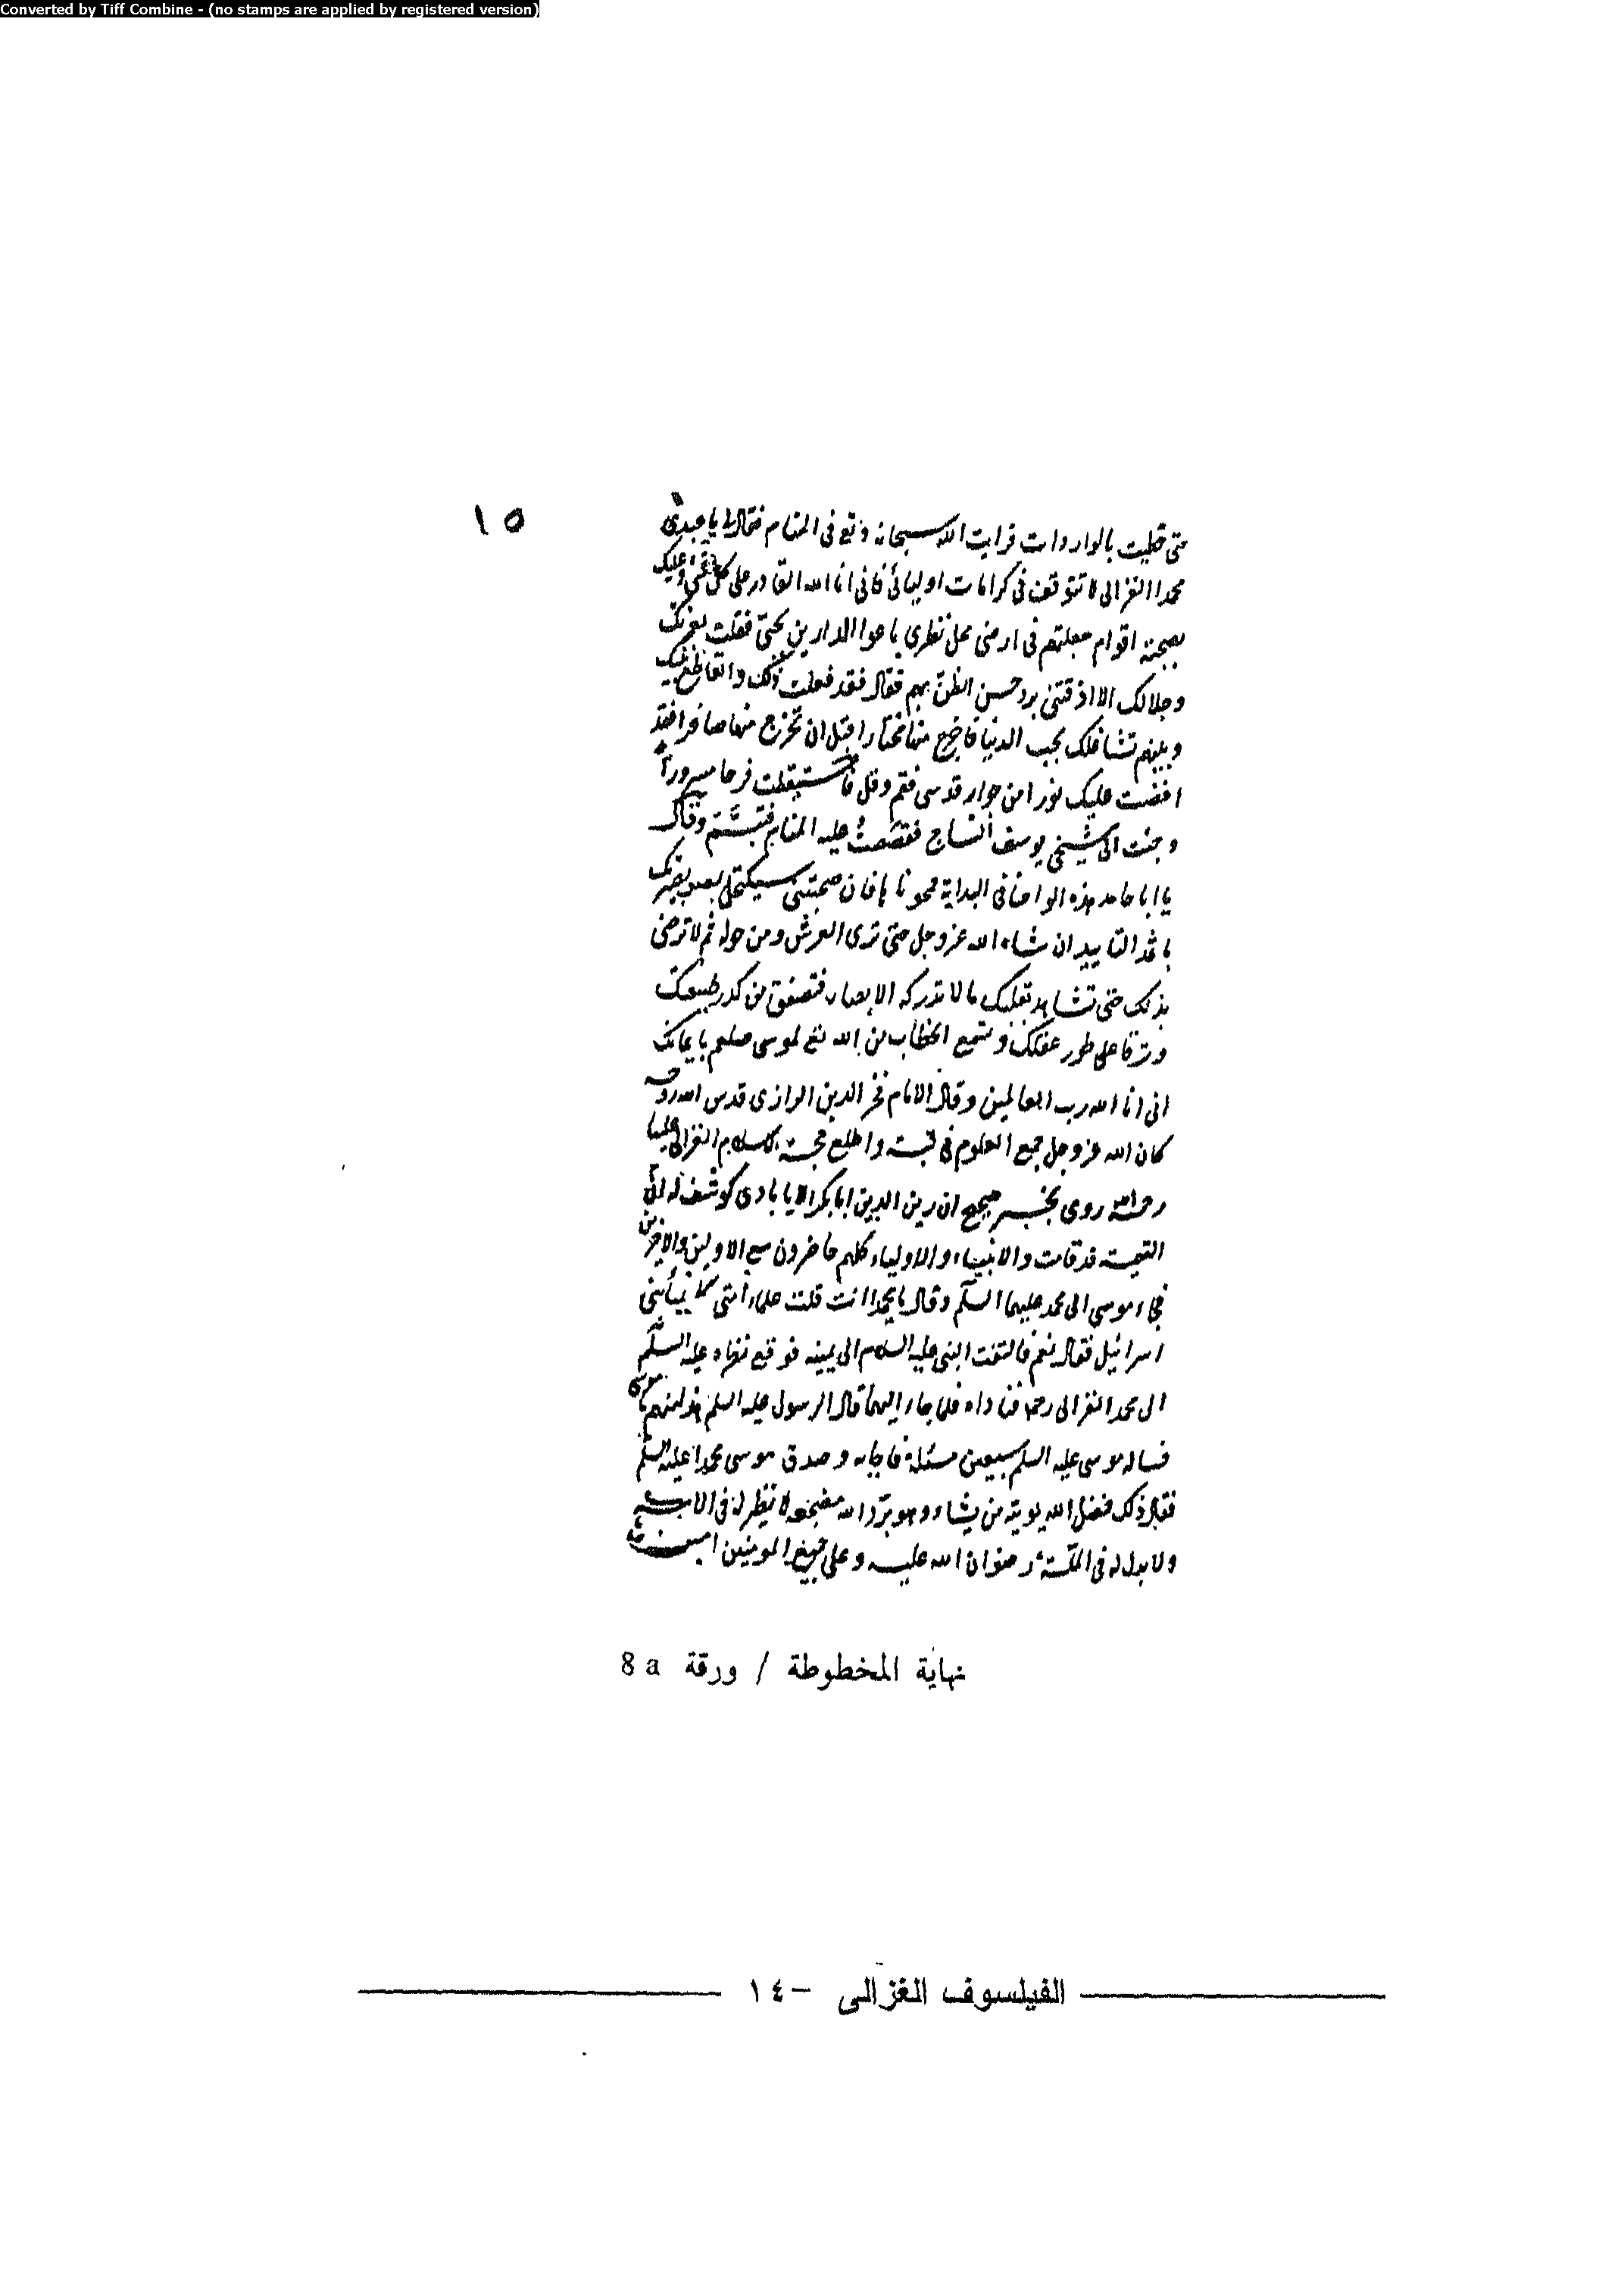 Converted by Tiff Combine - (no stamps are applied by registered version)
١٥
حتى حظيت بالواردات فرايت الله سبحانه وتع فى المنام فقال لى يا عبدى
محمدا الغزالى لا تتوقف فى كرامات اوليائى فانى انا الله القادر على كل شئ وعليك
بصحبة اقوام جعلتهم فى ارضى محل نظرى باعوا الدارين بحبى فقلت بعزتك
وجلالك الا اذقتنى برد حسن الظن بهم فقال فقد فعلت ذلك والقاطع بينك
وبينهم تشاغلك بحب الدنيا فاخرج منها مختارا قبل ان تخرج منها صاغرا فقد
افضت عليك نورا من جوار قدسى فقم وقل فاستيقظت فرحا مسرورا
وجئت الى شيخى يوسف النساج فقصصت عليه المنام فتبسم وقال
يا ابا حامد هذه الواحنا فى البداية محوناها فان صحبتنى سيكتحل بصر بصيرتك
باثمد التاييد ان شاء الله عز وجل حتى ترى العرش ومن حوله ثم لا ترضى
بذلك حتى تشاهد بقلبك ما لا تدركه الابصار فتصفو من كدر طبيعتك
وترقا على طور عقلك وتسمع الخطاب من الله تع لموسى صلعم بايمانك
انى انا الله رب العالمين وقال الامام فخر الدين الرازى قدس الله روحه
كان الله عز وجل جمع العلوم فى قبة واطلع حجة الاسلام الغزالى عليها
رحمه الله روى بخبر صحيح ان زين الدين ابا بكر الايابادى كوشف له ان
القيمة قد قامت والانبياء والاولياء كلهم حاضرون مع الاولين والاخرين
فجاء موسى الى محمد عليهما السلم وقال يا محمد انت قلت علماء امتى كانبياء بنى
اسرائيل فقال نعم فالتفت النبى عليه السلام الى يمينه فوقع نظره عليه السلم
الى محمد الغزالى رحمه فناداه فلما جاء اليهما قال الرسول عليه السلم هذا منهم يا موسى
فساله موسى عليه السلم سبعين مسئلة فاجابه وصدق موسى محمدا عليه السلم
فقال ذلك فضل الله يوتيه من يشاء وهو برد الله مضجعه لا نظير له فى الامة
ولا بدل له فى الملة رضوان الله عليه وعلى جميع المومنين امين
نهاية المخطوطة / ورقة 8 a
الفيلسوف الغزالى -١٤